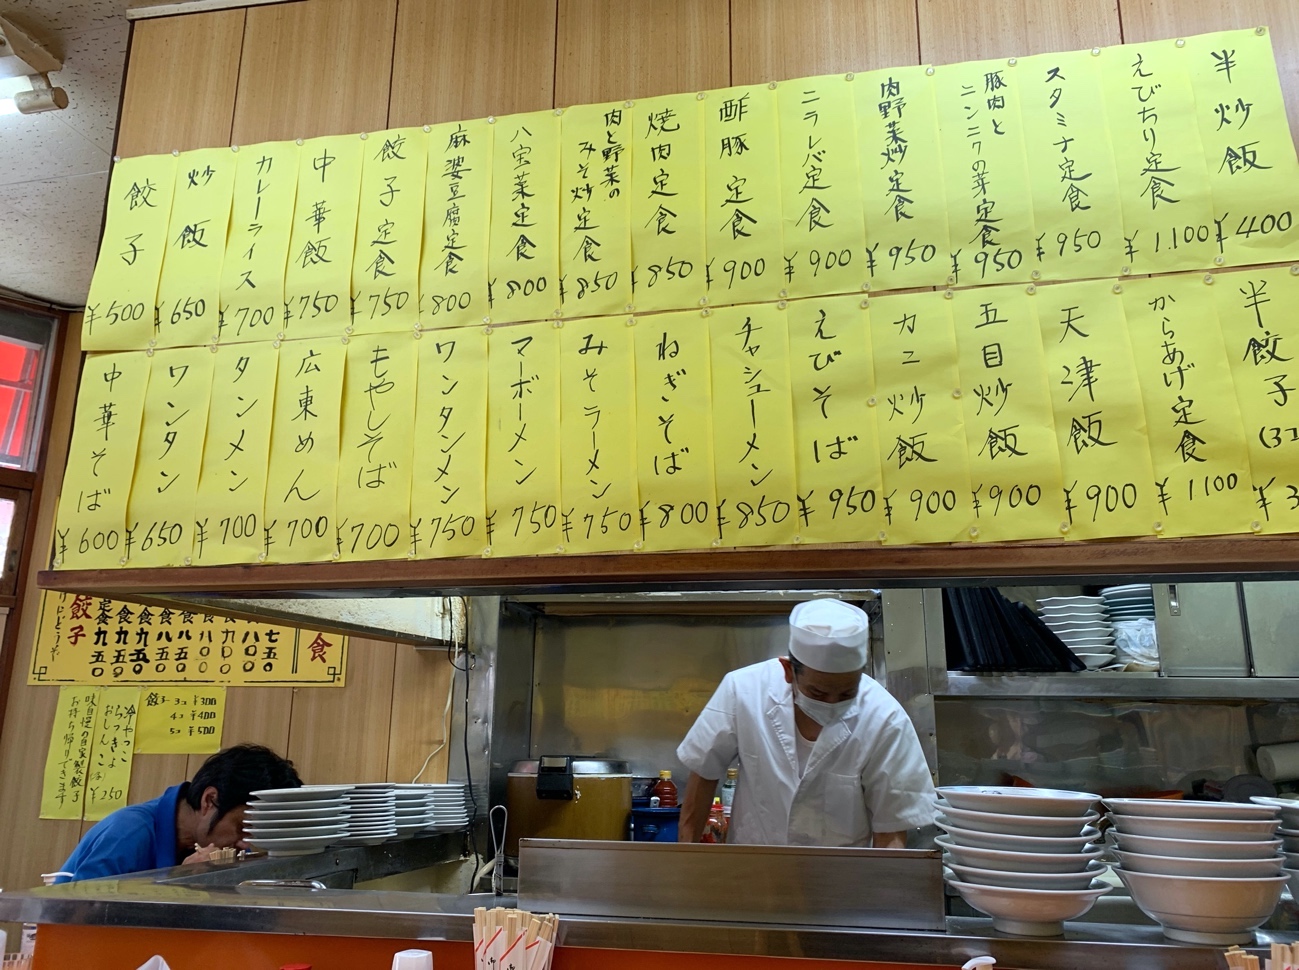 半炒飯 ¥400
えびちり定食 ¥1.100
スタミナ定食 ¥950
豚肉と
ニンニクの芽定食 ¥950
肉野菜炒定食 ¥950
ニラレバ定食 ¥900
酢豚定食 ¥900
焼肉定食 ¥850
肉と野菜の
みそ炒定食 ¥850
八宝菜定食 ¥800
麻婆豆腐定食 ¥800
餃子定食 ¥750
中華飯 ¥750
カレーライス ¥700
炒飯 ¥650
餃子 ¥500
半餃子
からあげ定食 ¥1100
天津飯 ¥900
五目炒飯 ¥900
カニ炒飯 ¥900
えびそば ¥950
チャシューメン ¥850
ねぎそば ¥800
みそラーメン ¥750
マーボーメン ¥750
ワンタンメン ¥750
もやしそば ¥700
広東めん ¥700
タンメン ¥700
ワンタン ¥650
中華そば ¥600
食
七五〇
八〇〇
食九〇〇
食八〇〇
食八五〇
食八五〇
食九五〇
食九五〇
定食九五〇
餃子
餃子 3コ ¥300
4コ ¥400
5コ ¥500
冷やっこ
らっきょ
おしんこ
¥250
味自慢の自家製餃子
お持ち帰りできます